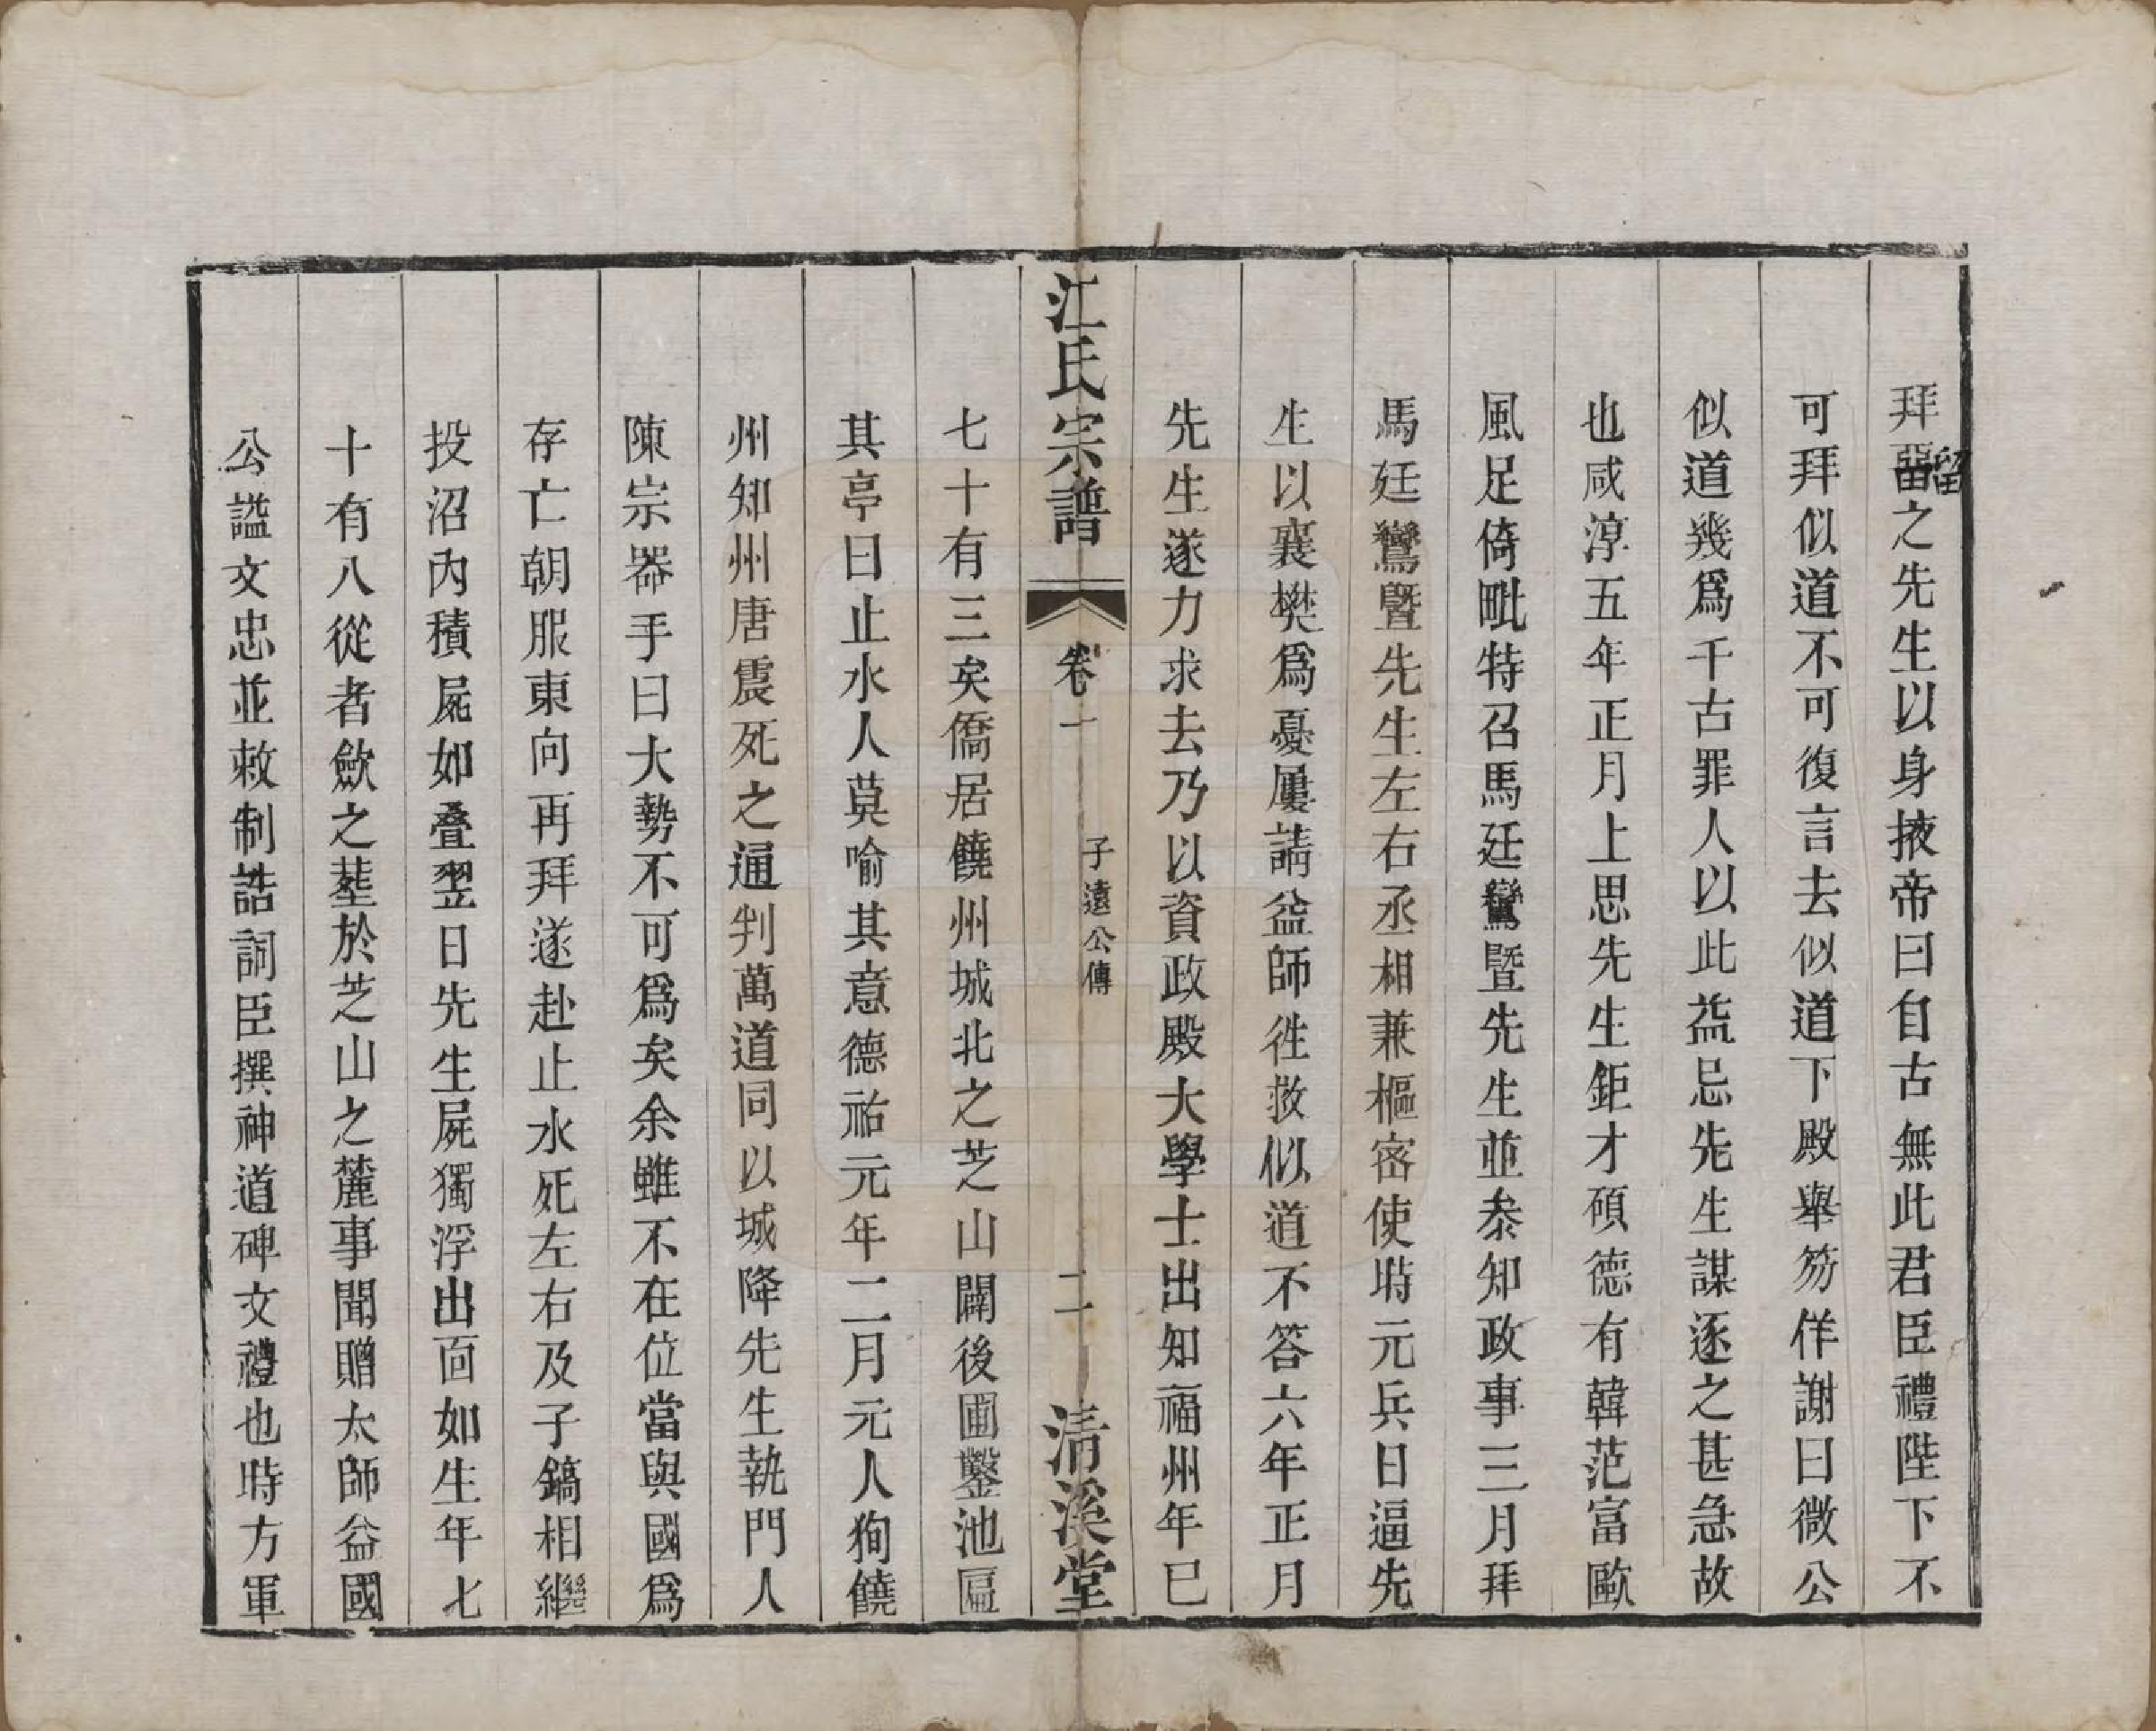 拜畱之先生以身掖帝曰自古無此君臣禮陛下不
留
可拜似道不可復言去似道下殿舉笏佯謝曰微公
似道幾爲千古罪人以此益忌先生謀逐之甚急故
也咸淳五年正月上思先生鉅才碩德有韓范富歐
風足倚毗特召馬廷鸞暨先生並叅知政事三月拜
馬廷鸞暨先生左右丞相兼樞密使時元兵日逼先
生以襄樊爲憂屢請益師徃救似道不答六年正月
先生遂力求去乃以資政殿大學士出知福州年巳
江氏宗譜
卷一
子遠公傳
二
清溪堂
七十有三矣僑居饒州城北之芝山闢後圃鑿池匾
其亭曰止水人莫喻其意德祐元年二月元人狥饒
州知州唐震死之通判萬道同以城降先生執門人
陳宗器手曰大勢不可爲矣余雖不在位當與國爲
存亡朝服東向再拜遂赴止水死左右及子鎬相繼
投沼內積屍如叠翌日先生屍獨浮出面如生年七
十有八從者歛之塟於芝山之麓事聞贈太師益國
公謚文忠並敕制誥詞臣撰神道碑文禮也時方軍